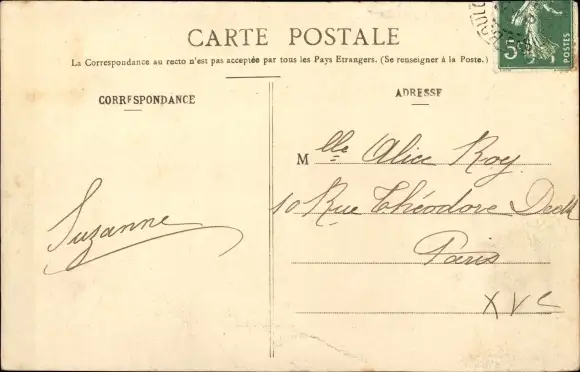 CARTE POSTALE
La Correspondance au recto n'est pas acceptée par tous les Pays Etrangers. (Se renseigner à la Poste.)
CORRESPONDANCE
ADRESSE
5
POSTES
Mlle Alice Roy
10 Rue Théodore Deck
Paris
XVe
Suzanne